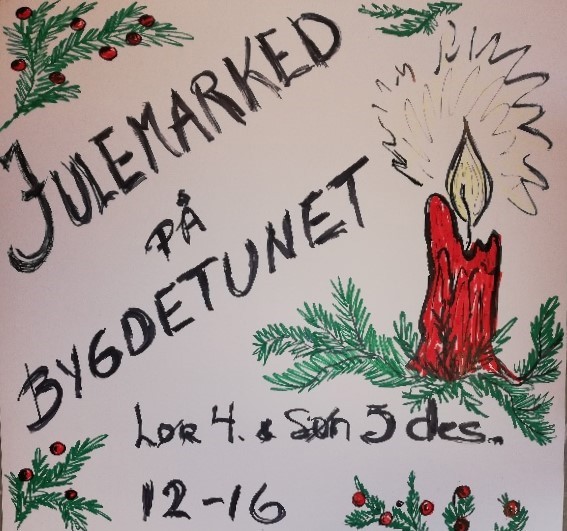 JULEMARKED
PÅ
BYGDETUNET
Lør 4. & Søn 5 des.
12-16